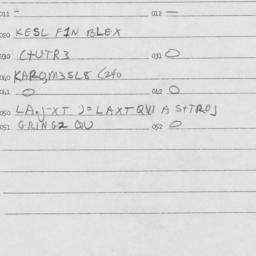 011 - 012 —
020 KESL FIN BLEX
030 C+UTR3 031 O
040 KARQM3SL8 (240
041 O 042 O
050 LA.j-XT )= LAXTQVI A S+TROJ
051 GRING2 QU 052 O